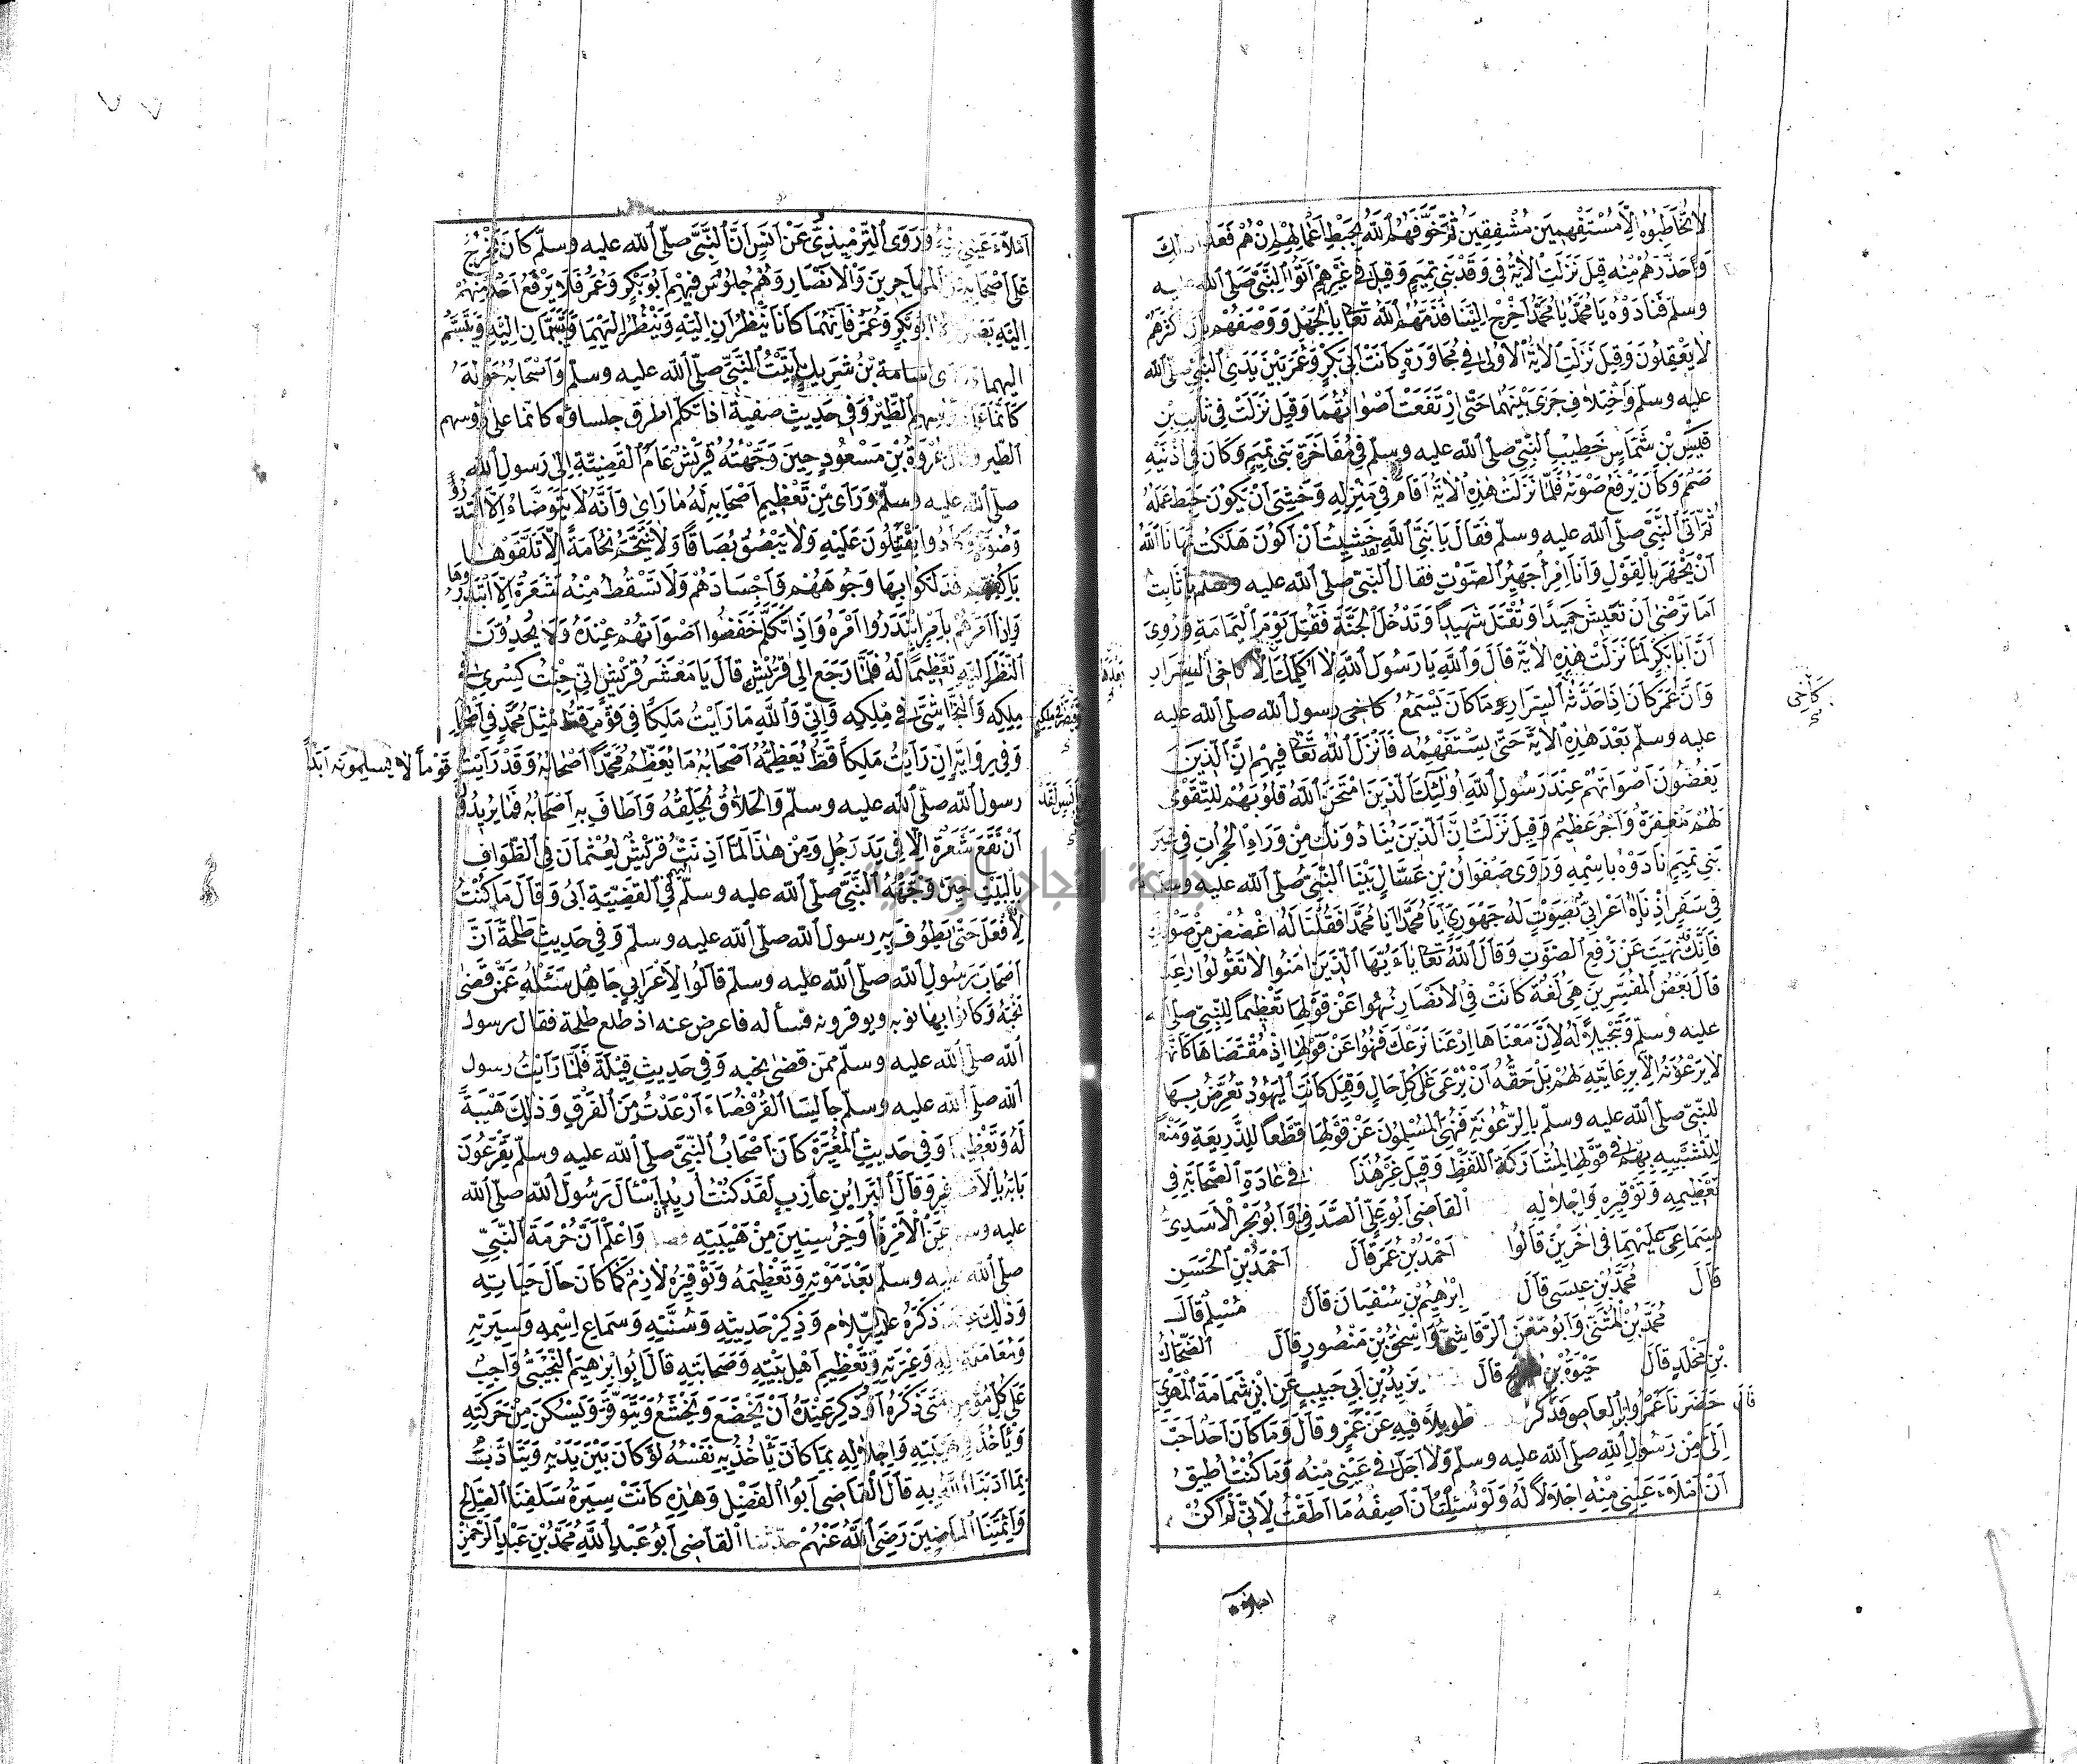 لا تخاطبوه الا مستفهمين مشفقين ثم خوفهم الله بحبط اعمالهم ان هم فعلوا ذلك
وحذرهم منه قيل نزلت الاية في وفد بني تميم وقيل في غيرهم اتوا النبي صلى الله عليه
وسلم فنادوه يا محمد يا محمد اخرج الينا فذمهم الله تعا بالجهل ووصفهم بان اكثرهم
لا يعقلون وقيل نزلت الاية الاولى في محاورة كانت ابي بكر وعمر بين يدي النبي صلى الله
عليه وسلم واختلاف جرى بينهما حتى ارتفعت اصواتهما وقيل نزلت في ثابت بن
قيس بن شماس خطيب النبي صلى الله عليه وسلم في مفاخرة بني تميم وكان في اذنيه
صمم وكان يرفع صوته فلما نزلت هذه الاية اقام في منزله وخشي ان يكون حبط عمله
ثم اتى النبي صلى الله عليه وسلم فقال يا نبي الله خشيت ان اكون هلكت نهانا الله
ان نجهر بالقول وانا امرأ جهير الصوت فقال النبي صلى الله عليه وسلم يا ثابت
اما ترضى ان تعيش حميدا وتقتل شهيدا وتدخل الجنة فقتل يوم اليمامة وروي
ان ابا بكر لما نزلت هذه الاية قال والله يا رسول الله لا اكلمك الا كاخي السرار
وان عمر كان اذا حدثه السرار ما كان يسمع كاخي رسول الله صلى الله عليه
كاخي
عليه وسلم بعد هذه الاية حتى يستفهمه فانزل الله تعا فيهم ان الذين
يغضون اصواتهم عند رسول الله اولئك الذين امتحن الله قلوبهم للتقوى
لهم مغفرة واجر عظيم وقيل نزلت ان الذين ينادونك من وراء الحجرات في غير
بني تميم نادوه باسمه وروى صفوان بن عسال بينا النبي صلى الله عليه وسلم
في سفر اذ ناداه اعرابي بصوت له جهوري ايا محمد ايا محمد فقلنا له اغضض من صوتك
فانك نهيت عن رفع الصوت وقال الله تعا ياءيها الذين امنوا لا تقولوا راعنا
قال بعض المفسرين هي لغة كانت في الانصار نهوا عن قولها تعظيما للنبي صلى
عليه وسلم وتبجيلا له لان معناها ارعنا نرعك فنهوا عن قولها اذ مقتضاها كانهم
لا يرعونه الا برعايته لهم بل حقه ان يرعى على كل حال وقيل كانت اليهود تعرض بها
للنبي صلى الله عليه وسلم بالرعونة فنهي المسلمون عن قولها قطعا للذريعة ومنعا
للتشبيه بهم في قولها لمشاركة اللفظ وقيل غير هذا في عادة الصحابة في
تعظيمه وتوقيره واجلاله القاضي ابو علي الصدفي وابو بحر الاسدي
بسماعي عليهما في اخرين قالوا احمد بن عمر قال احمد بن الحسن
قال محمد بن عيسى قال ابرهيم بن سفيان قال مسلم قال
محمد بن المثنى وابو معن الرقاشي واسحق بن منصور قال الضحاك
بن مخلد قال حيوة بن شريح قال يزيد بن ابي حبيب عن ابن شمامة المهري
قال حضرنا عمرو بن العاص فذكر طويلا فيه عن عمرو قال وما كان احد احب
الي من رسول الله صلى الله عليه وسلم ولا اجل في عيني منه وما كنت اطيق
ان املاء عيني منه اجلالا له ولو سئلت ان اصفه ما اطقت لاني لم اكن
املاء عيني منه وروى الترميذي عن انس ان النبي صلى الله عليه وسلم كان يخرج
على اصحابه من المهاجرين والانصار وهم جلوس فيهم ابو بكر وعمر فلا يرفع احد منهم
اليه بصره الا ابو بكر وعمر فانهما كانا ينظران اليه وينظر اليهما ويتبسمان اليه ويتبسم
اليهما وروى اسامة بن شريك اتيت النبي صلى الله عليه وسلم واصحابه حوله
كانما على رؤسهم الطير وفي حديث صفية اذا تكلم اطرق جلساؤه كانما على رؤسهم
الطير وقال عروة بن مسعود حين وجهته قريش عام القضية الى رسول الله
صلى الله عليه وسلم وراى من تعظيم اصحابه له ما راى وانه لا يتوضاء الا ابتدروا
وضوءه وكادوا يقتتلون عليه ولا يبصق بصاقا ولا يتنخم نخامة الا تلقوها
باكفهم فدلكوا بها وجوههم واجسادهم ولا تسقط منه شعرة الا ابتدروها
واذا امرهم بامر ابتدروا امره واذا تكلم خفضوا اصواتهم عنده ولا يحدون
النظر اليه تعظيما له فلما رجع الى قريش قال يا معشر قريش اني جئت كسرى في
ملكه والنجاشي في ملكه واني والله ما رايت ملكا في قوم قط مثل محمد في اصحابه
وفي رواية ان رايت ملكا قط يعظمه اصحابه ما يعظم محمدا اصحابه وقد رايت قوما لا يسلمونه ابدا
رسول الله صلى الله عليه وسلم والحلاق يحلقه واطاف به اصحابه فما يريدون
ان تقع شعرة الا في يد رجل ومن هذا لما اذنت قريش لعثمان في الطواف
بالبيت حين وجهه النبي صلى الله عليه وسلم في القضية ابى وقال ما كنت
لافعل حتى يطوف به رسول الله صلى الله عليه وسلم وفي حديث طلحة ان
اصحاب رسول الله صلى الله عليه وسلم قالوا لاعرابي جاهل سئله عمن قضى
نحبه وكانوا يهابونه ويوقرونه فسأله فاعرض عنه اذ طلع طلحة فقال رسول
الله صلى الله عليه وسلم ممن قضى نحبه وفي حديث قيلة فلما رايت رسول
الله صلى الله عليه وسلم جالسا القرفصاء ارعدت من الفرق وذلك هيبة
له وتعظيما وفي حديث المغيرة كان اصحاب النبي صلى الله عليه وسلم يقرعون
بابه بالاظافر وقال البرا ابن عازب لقد كنت اريد ان اسأل رسول الله صلى الله
عليه وسلم عن الامر فاوخر سنين من هيبته فصل واعلم ان حرمة النبي
صلى الله عليه وسلم بعد موته وتعظيمه وتوقيره لازم كما كان حال حياته
وذلك عند ذكره عليه السلام وذكر حديثه وسنته وسماع اسمه وسيرته
ومعاملة اله وعترته وتعظيم اهل بيته وصحابته قال ابو ابرهيم التجيبي واجب
على كل مؤمن متى ذكره او ذكر عنده ان يخضع ويخشع ويتوقر ويسكن من حركته
وياخذ في هيبته واجلاله بما كان ياخذ به نفسه لو كان بين يديه ويتادب
بما ادبنا الله به قال القاضي ابو الفضل وهذه كانت سيرة سلفنا الصالح
وائمتنا الماضين رضي الله عنهم حدثنا القاضي ابو عبد الله محمد بن عبد الرحمن